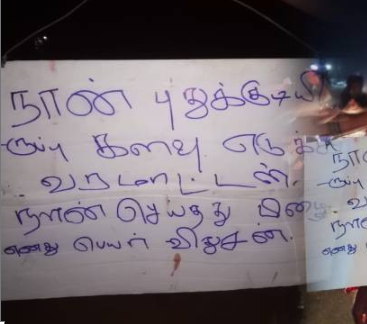 நான் புதுக்குடியி
ருப்பு களவு எடுக்க
வரமாட்டன்.
நான் செய்தது பிழை
எனது பெயர் விதுசன்.
நான்
ருப்பு
வ
நான்
எனது